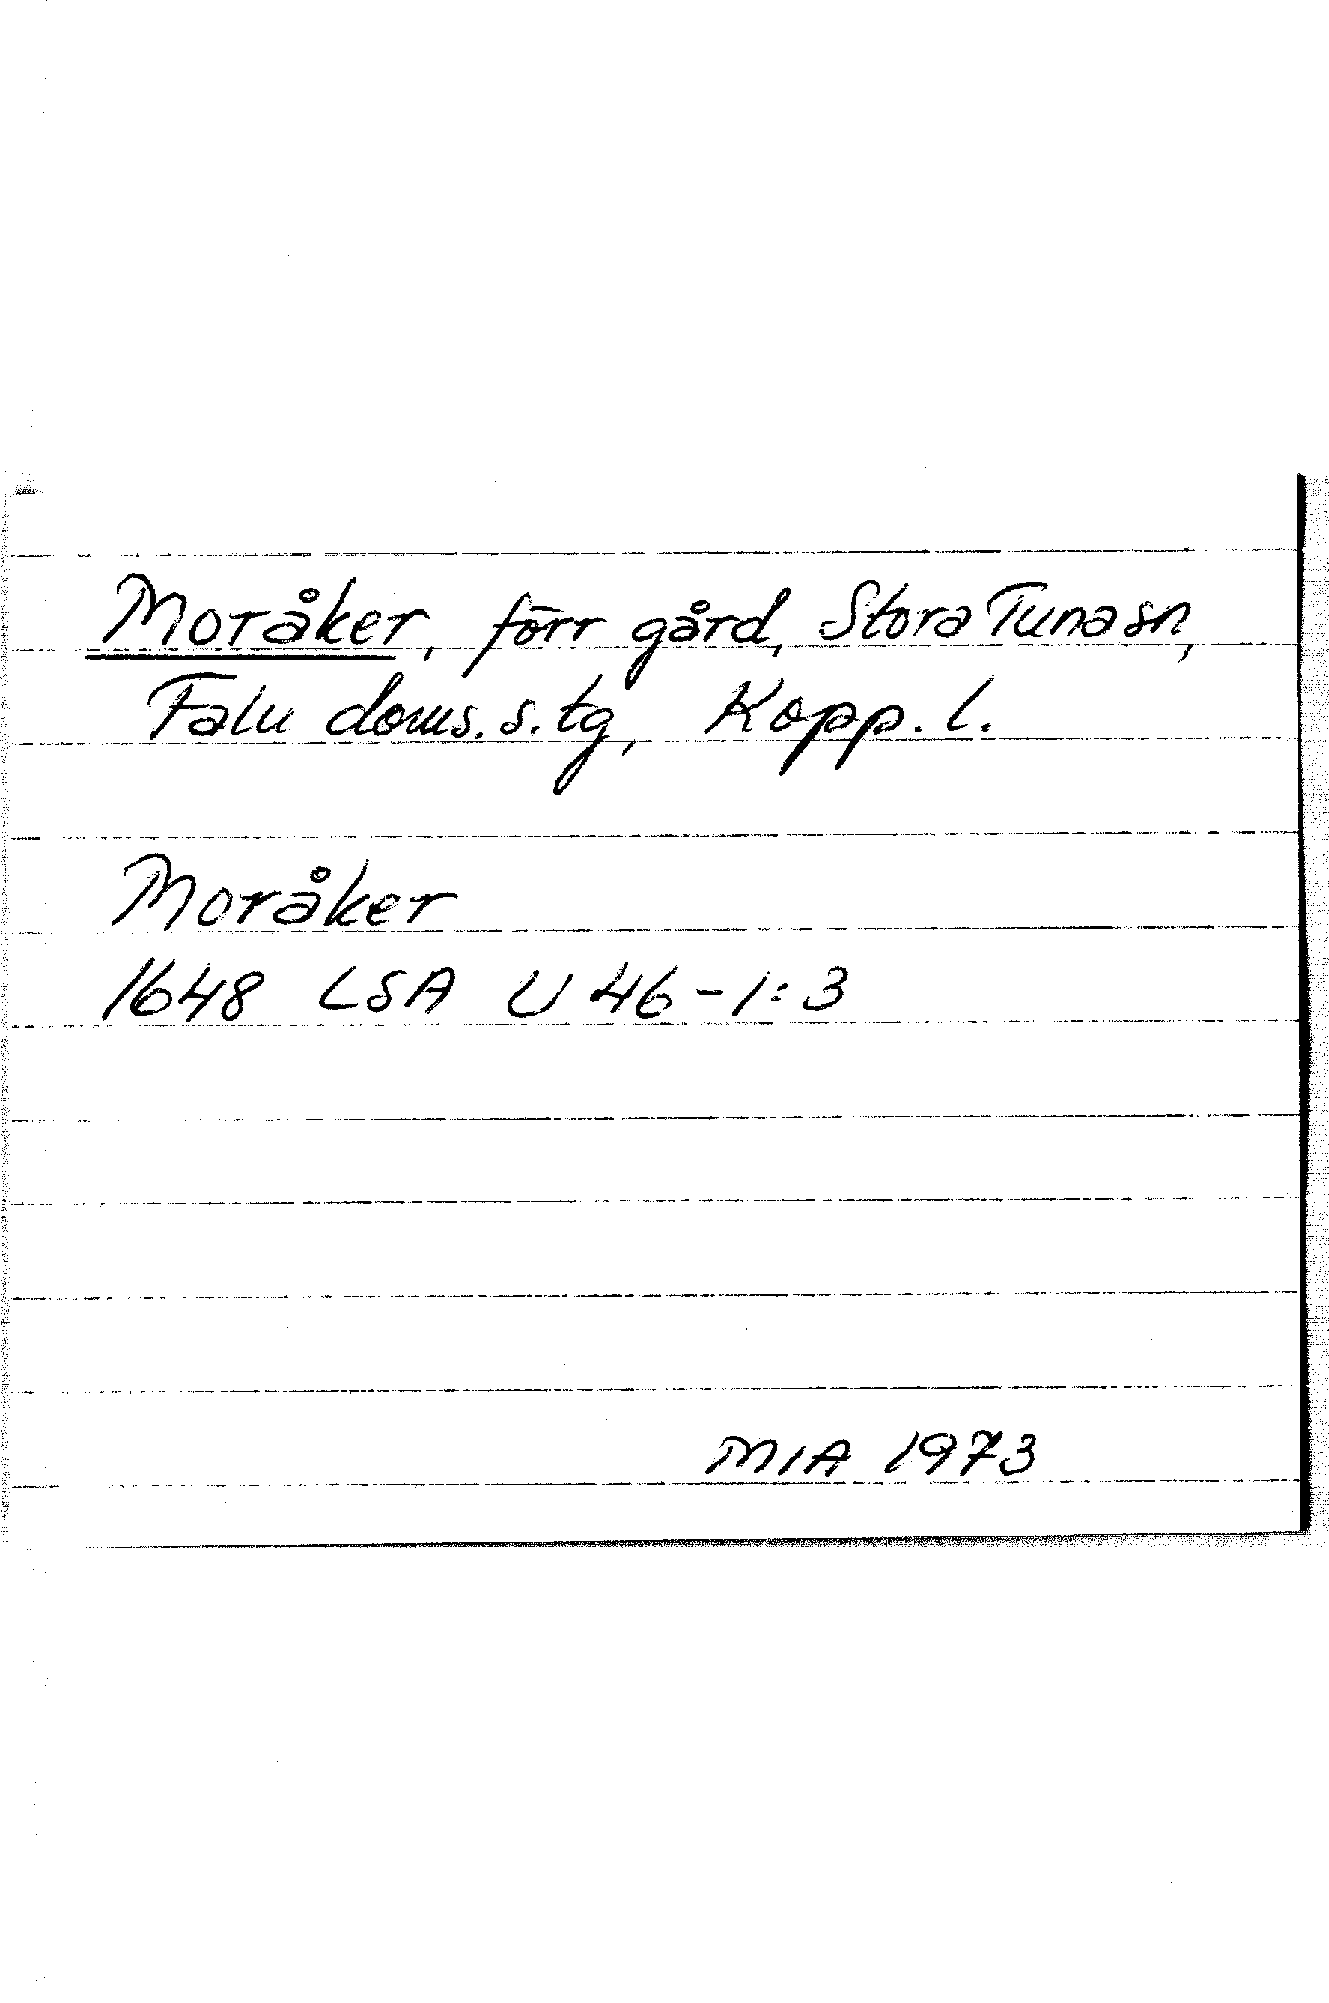 Moråker, förr gård, Stora Tuna sn,
Falu doms. s. tg, Kopp. l.
Moråker
1648 LSA U 46-1:3
MIA 1973